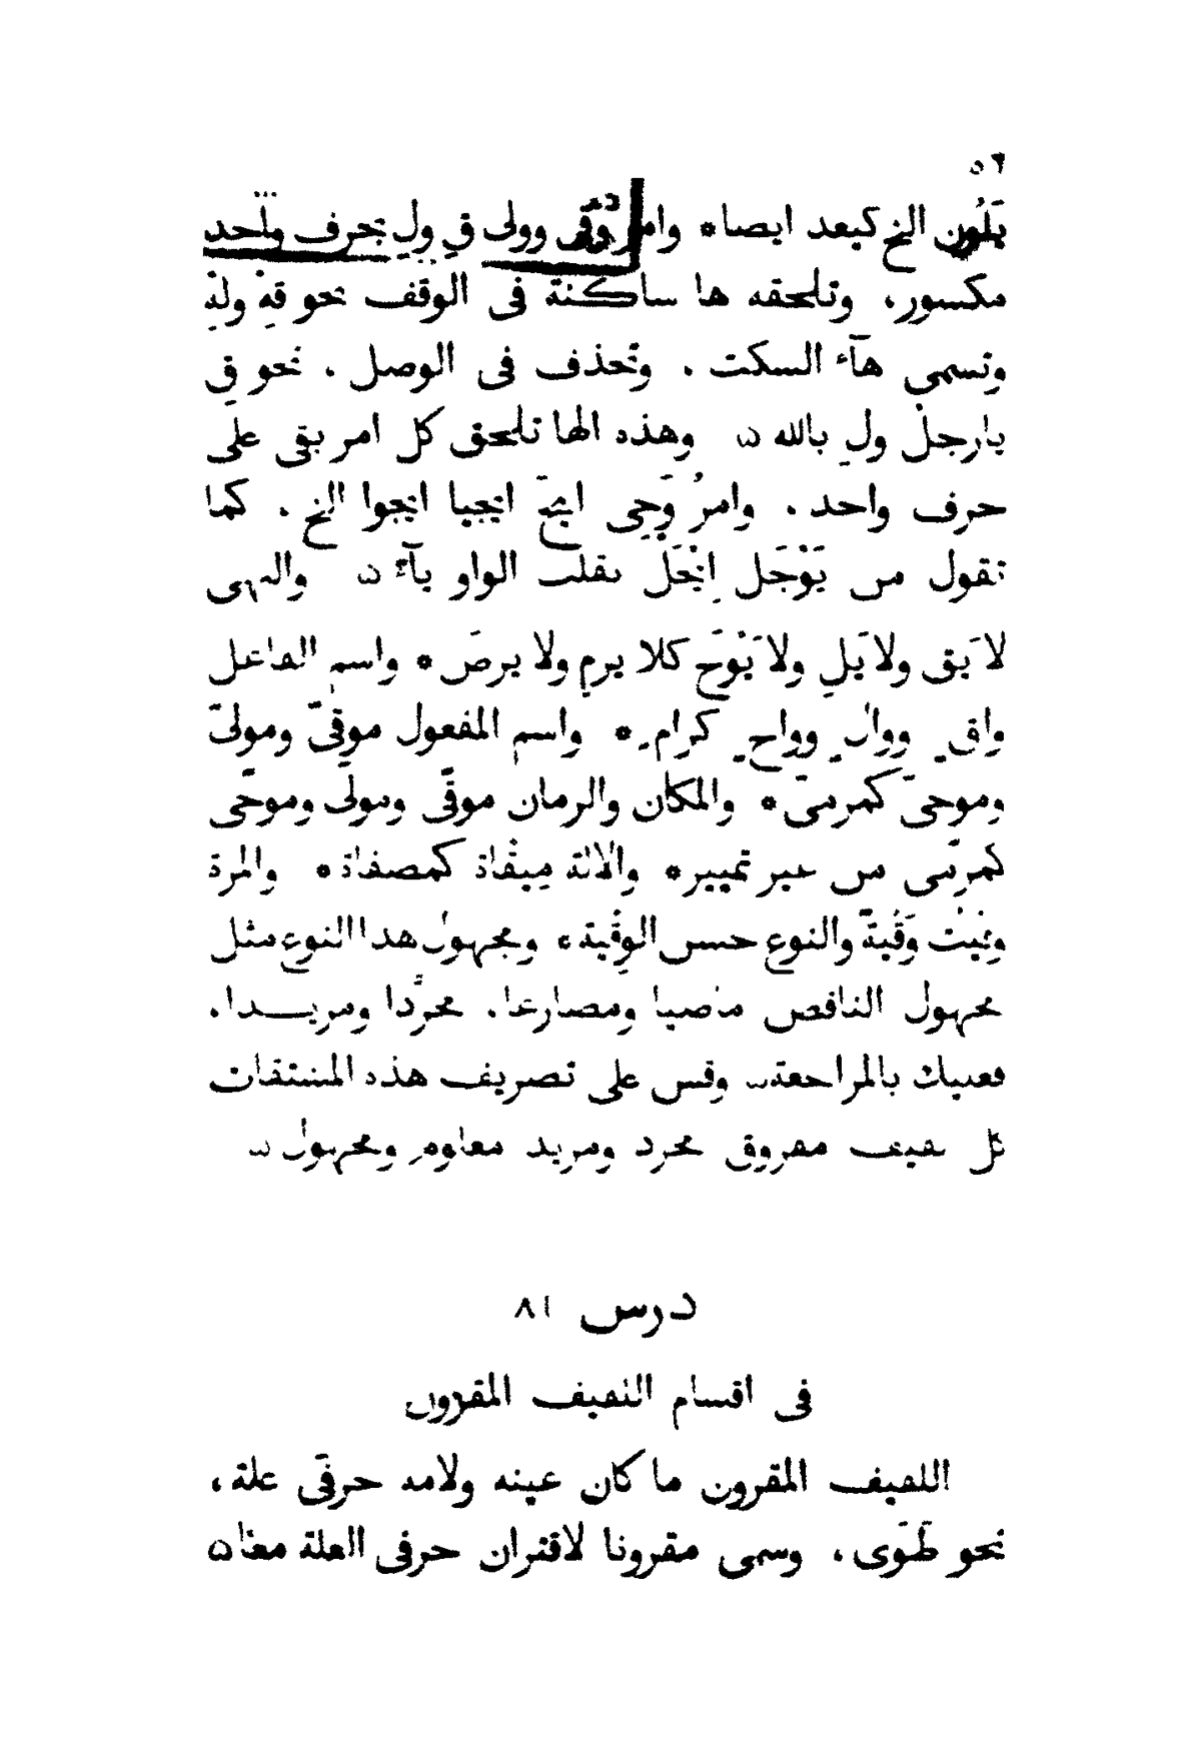 ٥٦
يَلُون الخ كيعد ايضا * وامر وقى وولى قِ ولِ بحرف واحد
مكسور، وتلحقه ها ساكنة فى الوقف نحو قِهْ ولِهْ
وتسمى هآء السكت . وتحذف فى الوصل . نحو قِ
يا رجلُ ولِ بالله ۞ وهذه الها تلحق كل امر بقى على
حرف واحد . وامرُ وَجِى ايجَ ايجيا ايجوا الخ . كما
تقول من يَوْجَل اِيْجَلْ بقلب الواو يآء ۞ والنهى
لا يَقِ ولا يَلِ ولا يَوْجَ كلا يرمِ ولا يرضَ * واسم الفاعل
واقٍ ووالٍ وواجٍ كرامٍ * واسم المفعول موقِىّ ومولىّ
وموجىّ كمرمىّ * والمكان والزمان موقًى ومولًى وموجًى
كمرمًى من غير تمييز * والالة مِيقاة كمصفاة * والمرة
وقيت وَقْيَةً والنوع حسن الوِقْية * ومجهول هذا النوع مثل
مجهول الناقص ماضيا ومضارعا . مجرَّدا ومزيدا .
فعليك بالمراجعة ۞ وقس على تصريف هذه المشتقات
كل لفيف مفروق مجرد ومزيد معلوم ومجهول ۞
درس ٨١
فى اقسام اللفيف المقرون
اللفيف المقرون ما كان عينه ولامه حرفَى علة ،
نحو طَوَى . وسمى مقرونا لاقتران حرفى العلة معا ۞